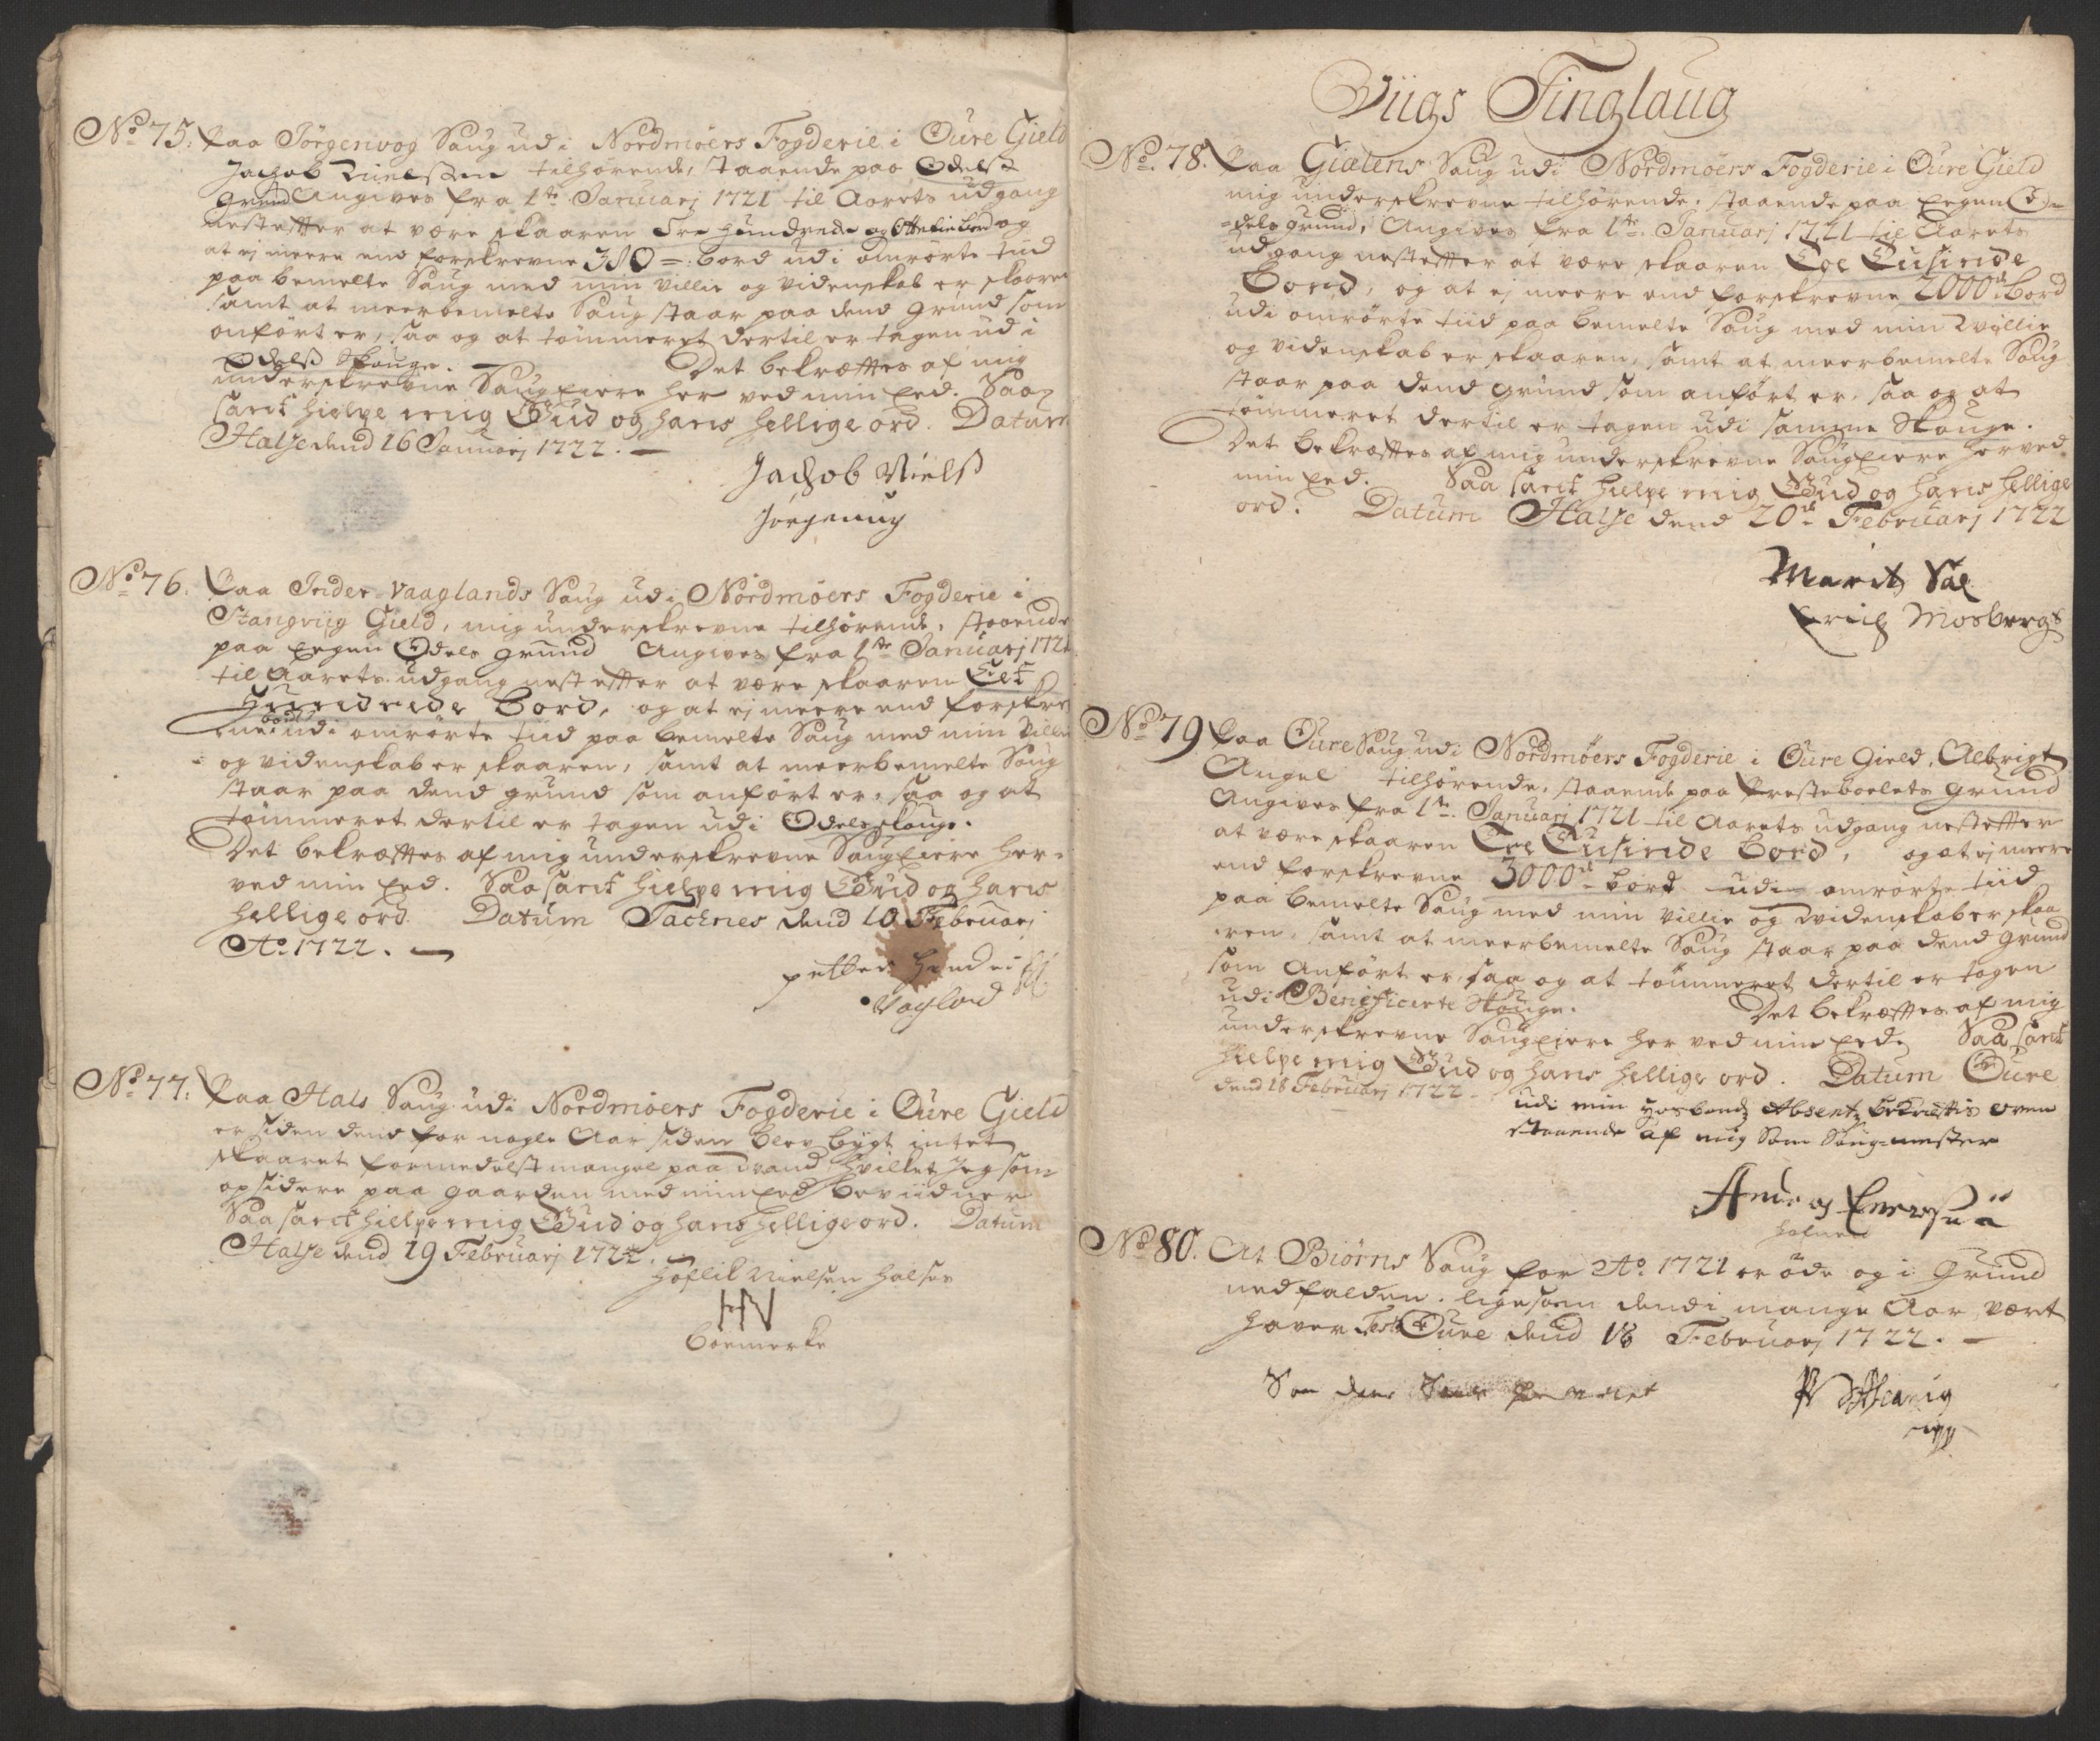 No 75. Paa Jörgenvog Saug udi Nordmöers Fogderie i Oure Gield
Jachob Nielssen tilhörende, staaende paa Odelss
grund Angives fra 1te Januarj 1721 til Aarets udgang
nestefter at være skaaren Tre hundrede og Ottetie bord og
at ej meere end forskrevne 380 bord udi omrörte tiid
paa bemelte Saug med min villie og videnskab er skaaren
samt at meerbemelte Saug staar paa dend grund som
anfört er, saa og at tömmeret dertil er tagen udi
Odelss Skouge. Det bekræftes af mig
underskrevne Saug Eiere her ved min Eed. Saa
sant hielpe mig Gud og hans hellige ord. Datum
Halse dend 16 Januarj 1722.
Jachob Nielss
Jorgenug
No 76. Paa Inder-Vaaglands Saug udi Nordmöers Fogderie i
Stangviig Gield, mig underskrevne tilhörende, staaende
paa Eegen Odels grund Angives fra 1te Januarj 1721
til Aarets udgang nestefter at være skaaren Eet
Hundrede Bord, og at ej meere end forskre
vne bord udi omrörte tiid paa bemelte Saug med min Villie
og videnskab er skaaren, samt at meerbemelte Saug
staar paa dend grund som anfört er, saa og at
tömmeret dertil er tagen udi Odels skouge.
Det bekræftes af mig underskrevne Saug Eiere her
ved min Eed. Saa sant hielpe mig Gud og hans
hellige ord. Datum Tachnes dend 10 Februarj
Ao 1722.
petter
Vagland
No 77. Paa Hals Saug udi Nordmöers Fogderie i Oure Gield
er siden dend for nogle Aar siden blev bygt intet
skaaret formedelst mangel paa Vand, hvilket Jeg som
opsidere paa gaarden med min Eed beviidner
Saa sant hielpe mig Gud og hans hellige ord. Datum
Halse dend 19 Februarj 1722.
Nielsen Halses
HN
boemerke
Viigs Tinglaug
No 78. Paa Gialens Saug udi Nordmöers Fogderie i Oure Gield
mig underskrevne tilhörende, staaende paa Eegen O-
dels grund, Angives fra 1te Januarj 1721 til Aarets
udgang nestefter at være skaaren Toe Tusinde
Bord, og at ej meere end forskrevne 2000de bord
udi omrörte tiid paa bemelte Saug med min Villie
og videnskab er skaaren, samt at meerbemelte Saug
staar paa dend grund som anfört er, saa og at
tömmeret dertil er tagen udi samme Skouge.
Det bekræftes af mig underskrevne Saug Eiere her ved
min Eed. Saa sant hielpe mig Gud og hans hellige
ord. Datum Halse dend 20de Februarj 1722
Marit Sal
Erich Mosbergs
No 79 Paa Oure Saug udi Nordmöers Fogderie i Oure Gield, Albrigt
Angel tilhörende, staaende paa Presteboelets grund
Angives fra 1te Januarj 1721 til Aarets udgang nestefter
at være skaaren Tre Tusinde Bord, og at ej meere
end forskrevne 3000de bord udi omrörte tiid
paa bemelte Saug med min villie og Videnskab er skaa
ren, samt at meerbemelte Saug staar paa dend grund
som Anfört er, saa og at tömmeret dertil er tagen
udi Beneficerte Skouge. Det bekræftes af mig
underskrevne Saug Eiere her ved min Eed, Saa sant
hielpe mig Gud og hans hellige ord. Datum Oure
dend 18 Februarj 1722
udi min Hosbonds Absents bekreftis oven
staaende af mig Som Saug-mester
No 80. At Biörns Saug for Ao 1721 er öde og i Grund
nedfalden, ligesom dend i mange Aar vært
haver, Oure dend 18 Februarj 1722.